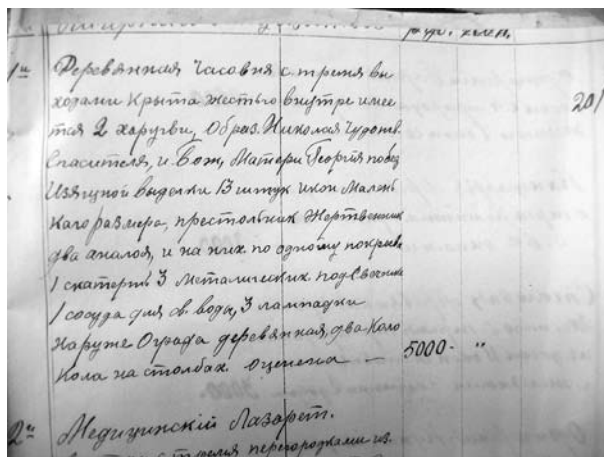 руб. копѣек.
1й Деревянная Часовня с тремя вы
ходами Крыта жестью внутре имее
201
тся 2 харугви, Образ. Николая Чудотв.
Спасителя, и Бож, Матери Георгія побед
Изящной выделки 13 штук икон Малень
Каго размера, престольник Жертвенник
два аналоя, и на них по одному покрыв
1 скатерть 3 Металических подсвечника
1 сосуда для св. воды, 3 лампадки
Наруже Ограда деревянная, два Коло
Кола на столбах оценена — 5000- "
2й Медицинскій Лазарет.
тремя перегородками из.